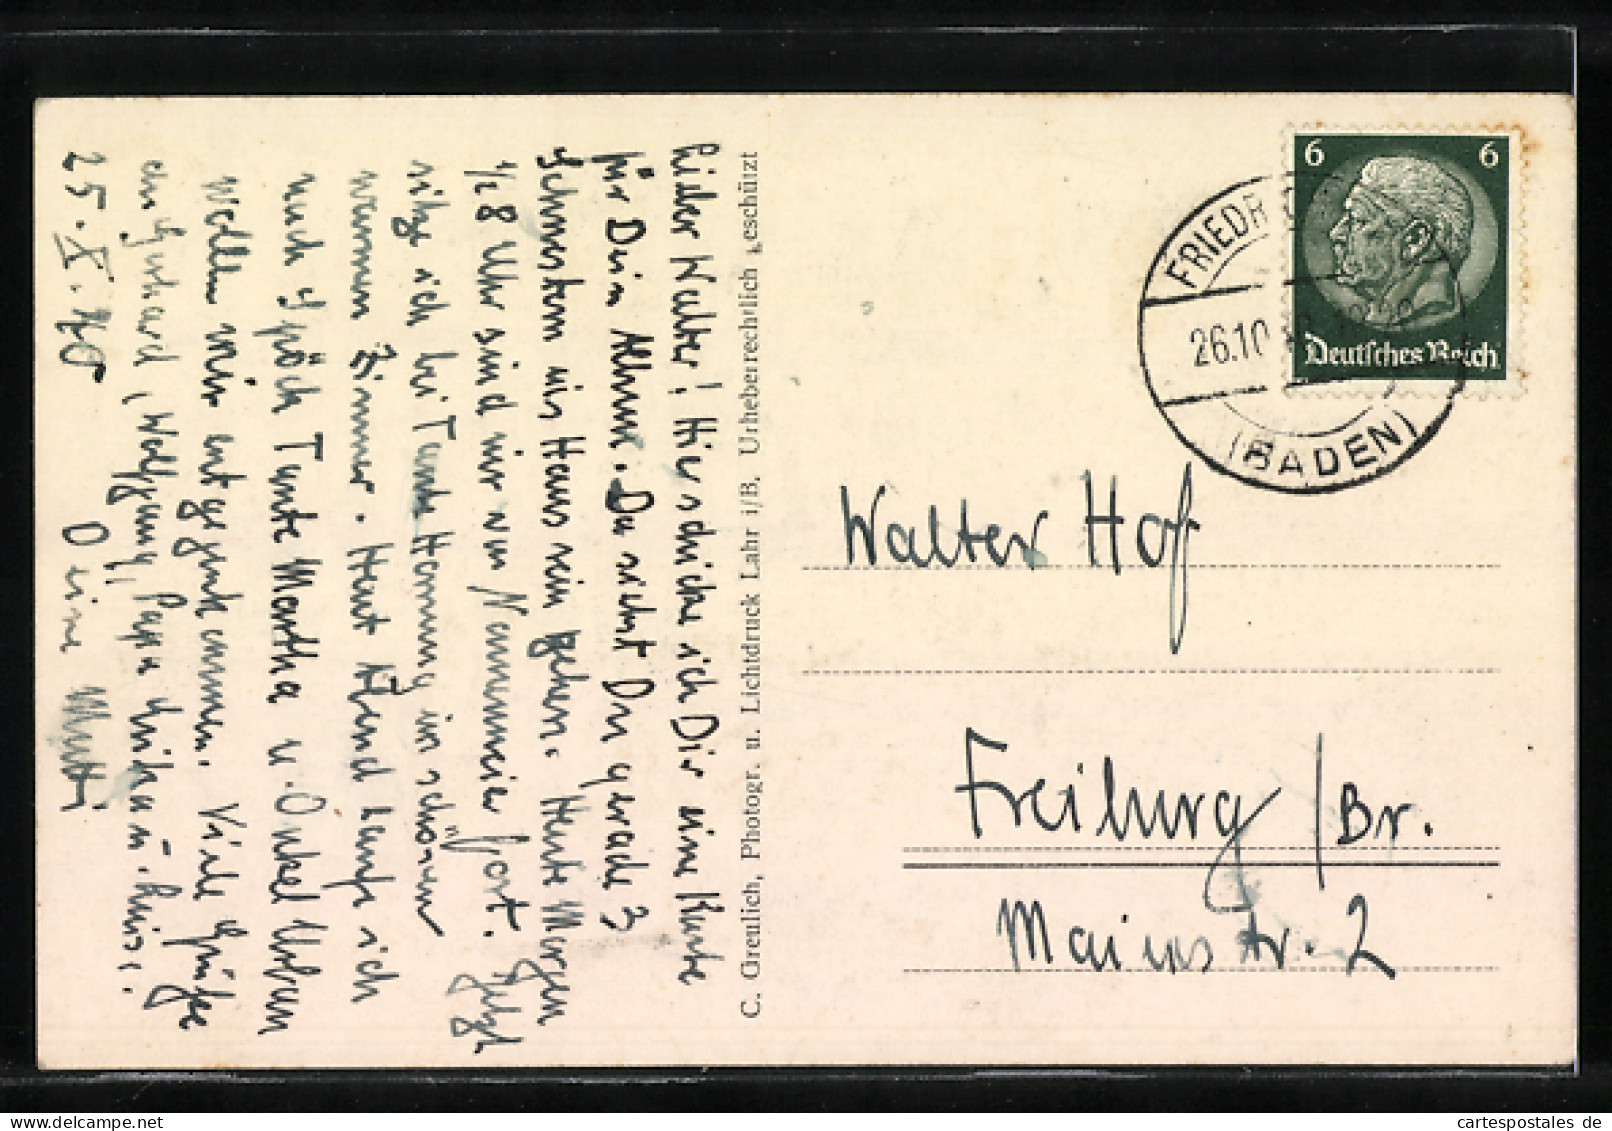 Lieber Walter! Hier schicke ich Dir eine Karte
für Dein Album. Da siehst Du gerade 3
Schwestern ins Haus rein gehen. Heute Morgen
1/2 8 Uhr sind wir von Nonnweier fort. Jetzt
sitze ich bei Tante Hornung im schönen
warmen Zimmer. Heut Abend laufe ich
nach Spöck Tante Martha u. Onkel
wollen mir entgegenkommen. Viele Grüße
an Gerhard, Wolfgang, Papa
25.X.40 Deine Mutti
C. Greulich, Photogr. u. Lichtdruck Lahr i/B. Urheberrechtlich geschützt
6 6
Deutsches Reich
FRIEDR
26.10
(BADEN)
Walter Hof
Freiburg/Br.
Mainstr. 2
cartespostales de